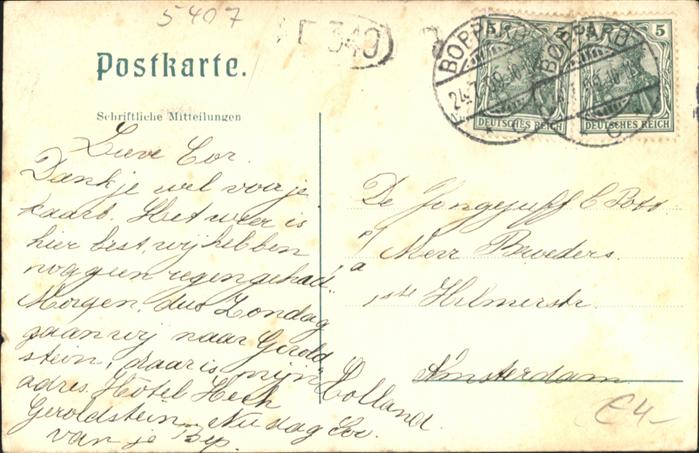 5407
340
Postkarte.
Schriftliche Mitteilungen
BOPPARD
BOPPARD
5
DEUTSCHES REICH
DEUTSCHES REICH
Lieve Cor.
Dank je wel voor je
kaart. Het weer is
hier best, wij hebben
nog geen regen gehad.
Morgen, dus Zondag
gaan wij naar Gerold
stein, daar is mijn
adres Hôtel Heck
Geroldstein. Nu dag Cor.
van je Bep.
De Jongejuff C Pott
Merr Broeders.
1ste Helmerstr.
Amsterdam
Holland.
€4-